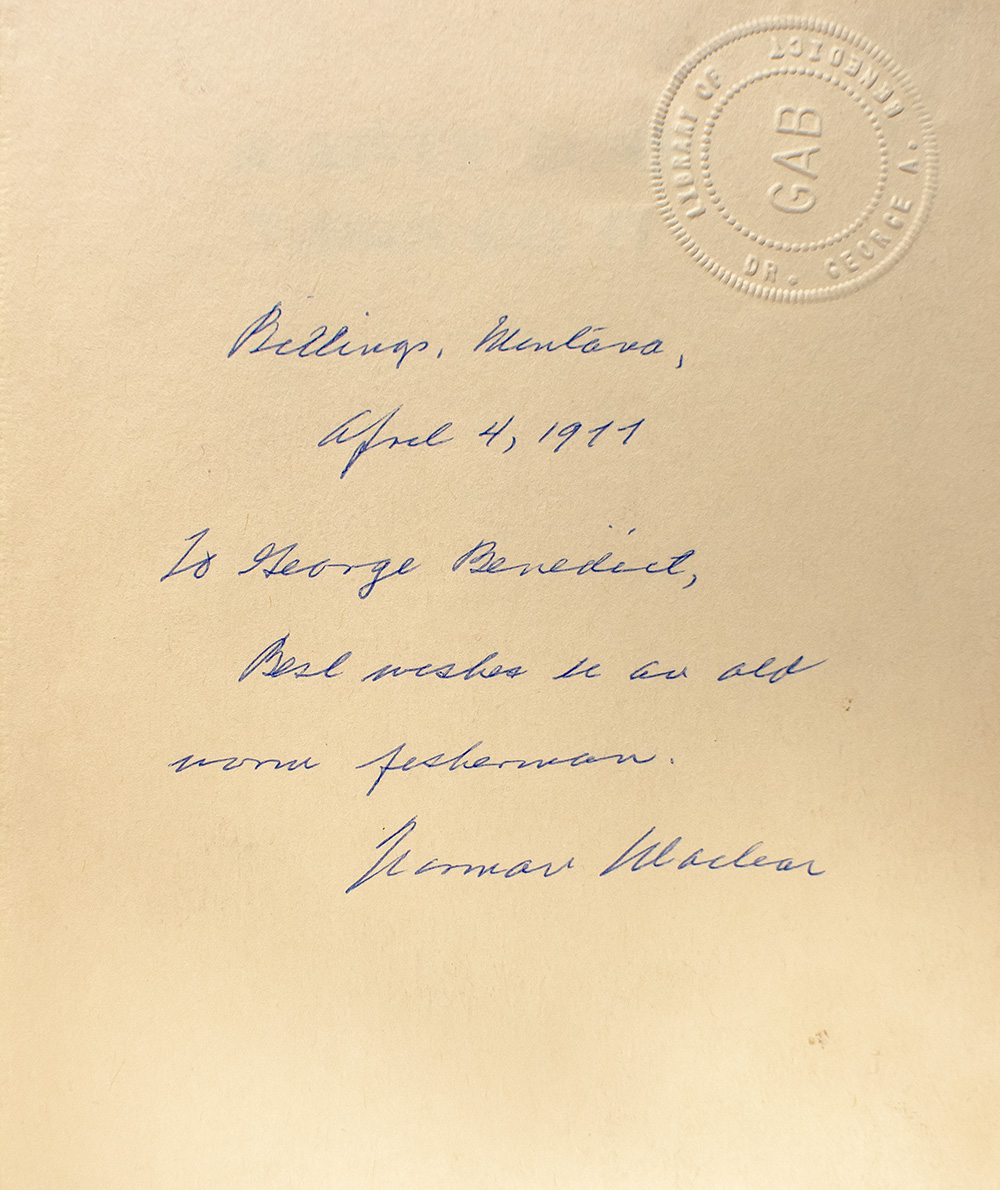 LIBRARY OF
DR. GEORGE A. BENEDICT
GAB
Billings, Montana,
April 4, 1977
To George Benedict,
Best wishes to an old
worm fisherman.
Norman Maclean